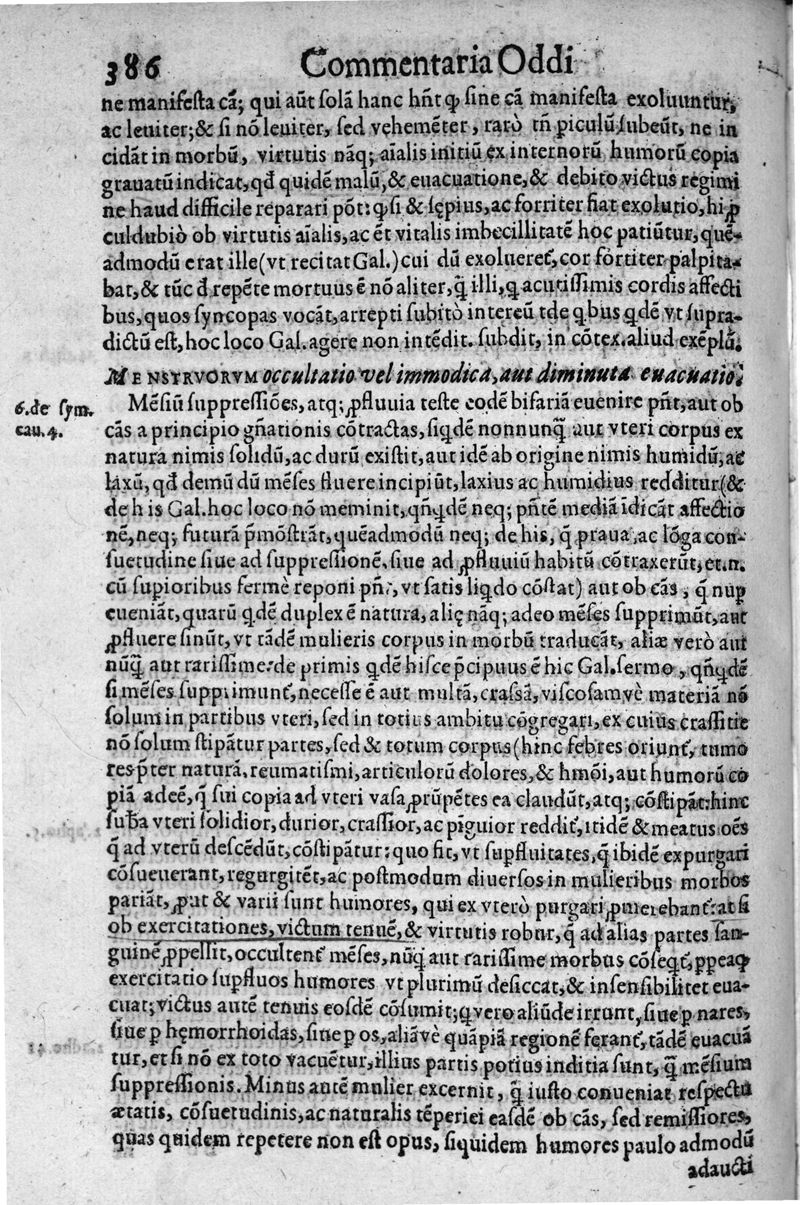 386 Commentaria Oddi
ne manifesta cā; qui aūt solā hanc hn̄t ꝙ sine cā manifesta exoluuntur,
ac leuiter; & si nō leuiter, sed vęhemēter, rarò tn̄ ꝑiculū subeūt, ne in
cidāt in morbū, virtutis nāq; aīalis initiū ex internorū humorū copia
grauatū indicat, qđ quidē malū, & euacuatione, & debito victus regimi
ne haud difficile reparari pōt: ꝙ si & sępius, ac forriter fiat exolutio, hi ꝓ
culdubiò ob virtutis aīalis, ac ēt vitalis imbecillitatē hoc patiūtur, quē-
admodū erat ille (vt recitat Gal.) cui dū exolueret᷑, cor fòrtiter palpita-
bat, & tūc đ repēte mortuus ē nō aliter, q̄ illi, q acutissimis cordis affecti
bus, quos syncopas vocāt, arrepti subitò intereūt de qbus qdē vt supra-
dictū est, hoc loco Gal. agere non intēdit. subdit, in cōtex. aliud exēplū.
MENSTRVORVM occultatio vel immodica, aut diminuta euacuatio.
6. de sym. Mēsiū suppressiōes, atq; ꝓfluuia teste eodē bifariā euenire pn̄t, aut ob
cau. 4. cās a principio gn̄ationis cōtractas, siqdē nonnunq̄ aut vteri corpus ex
natura nimis solidū, ac durū existit, aut idē ab origine nimis humidū, ac
laxū, qđ demū dū mēses fluere incipiūt, laxius ac humidius redditur (&
de his Gal. hoc loco nō meminit, qn̄qdē neq; pn̄tē mediā īdicāt affectio
nē, neq; futurā p̄mōstrāt, quēadmodū neq; de his, q̄ praua, ac lōga con-
suetudine siue ad suppressionē, siue ad ꝓfluuiū habitū cōtraxerūt, et.n.
cū supioribus fermè reponi pn̄t, vt satis liqdo cōstat) aut ob cās, q̄ nup
eueniāt, quarū qdē duplex ē natura, alię nāq; adeo mēses supprimūt, aut
ꝓfluere sinūt, vt tādē mulieris corpus in morbū traducāt, aliæ verò aut
nūq̄ aut rarissime: de primis qdē hisce p̄cipuus ē hic Gal. sermo, qn̄qdē
si mēses supprimunt᷑, necesse ē aut multā, crassā, viscosamvè materiā nō
solum in partibus vteri, sed in totius ambitu cōgregari, ex cuius crassitie
nō solum stipātur partes, sed & totum corpus (hinc febres oriunt᷑, tumo
res p̄ter naturā, reumatismi, articulorū dolores, & hmōi, aut humorū co
piā adeē, q̄ sui copia ad vteri vasa ꝓrūpētes ea claudūt, atq; cōstipāt: hinc
suba vteri solidior, durior, crassior, ac pīguior reddit᷑, itidē & meatus oēs
q̄ ad vterū descēdūt, cōstipātur: quo fit, vt supfluitates, q̄ ibidē expurgari
cōsueuerant, regurgitēt, ac postmodum diuersos in mulieribus morbos
pariāt, ꝓut & varii sunt humores, qui ex vterò purgari ꝓmerebant᷑: at si
ob exercitationes, victum tenuē, & virtutis robur, q̄ ad alias partes san-
guinē ꝓpellit, occultent᷑ mēses, nūq̄ aut rarissime morbus cōseqt᷑, ꝓpeaꝙ
exercitatio supfluos humores vt plurimū desiccat, & insensibilitet eua-
cuat; victus autē tenuis eosdē cōsumit; q vero aliūde irrunt, siue p nares,
siue p hęmorrhoidas, siue p os, aliāvè quāpiā regionē ferant᷑, tādē euacuā
tur, et si nō ex toto vacuētur, illius partis potius inditia sunt, q̄ mēsium
suppressionis. Minus autē mulier excernit, q̄ iusto conueniat respectu
ætatis, cōsuetudinis, ac naturalis tēperiei easdē ob cās, sed remissiores,
quas quidem repetere non est opus, siquidem humores paulo admodū
adaucti